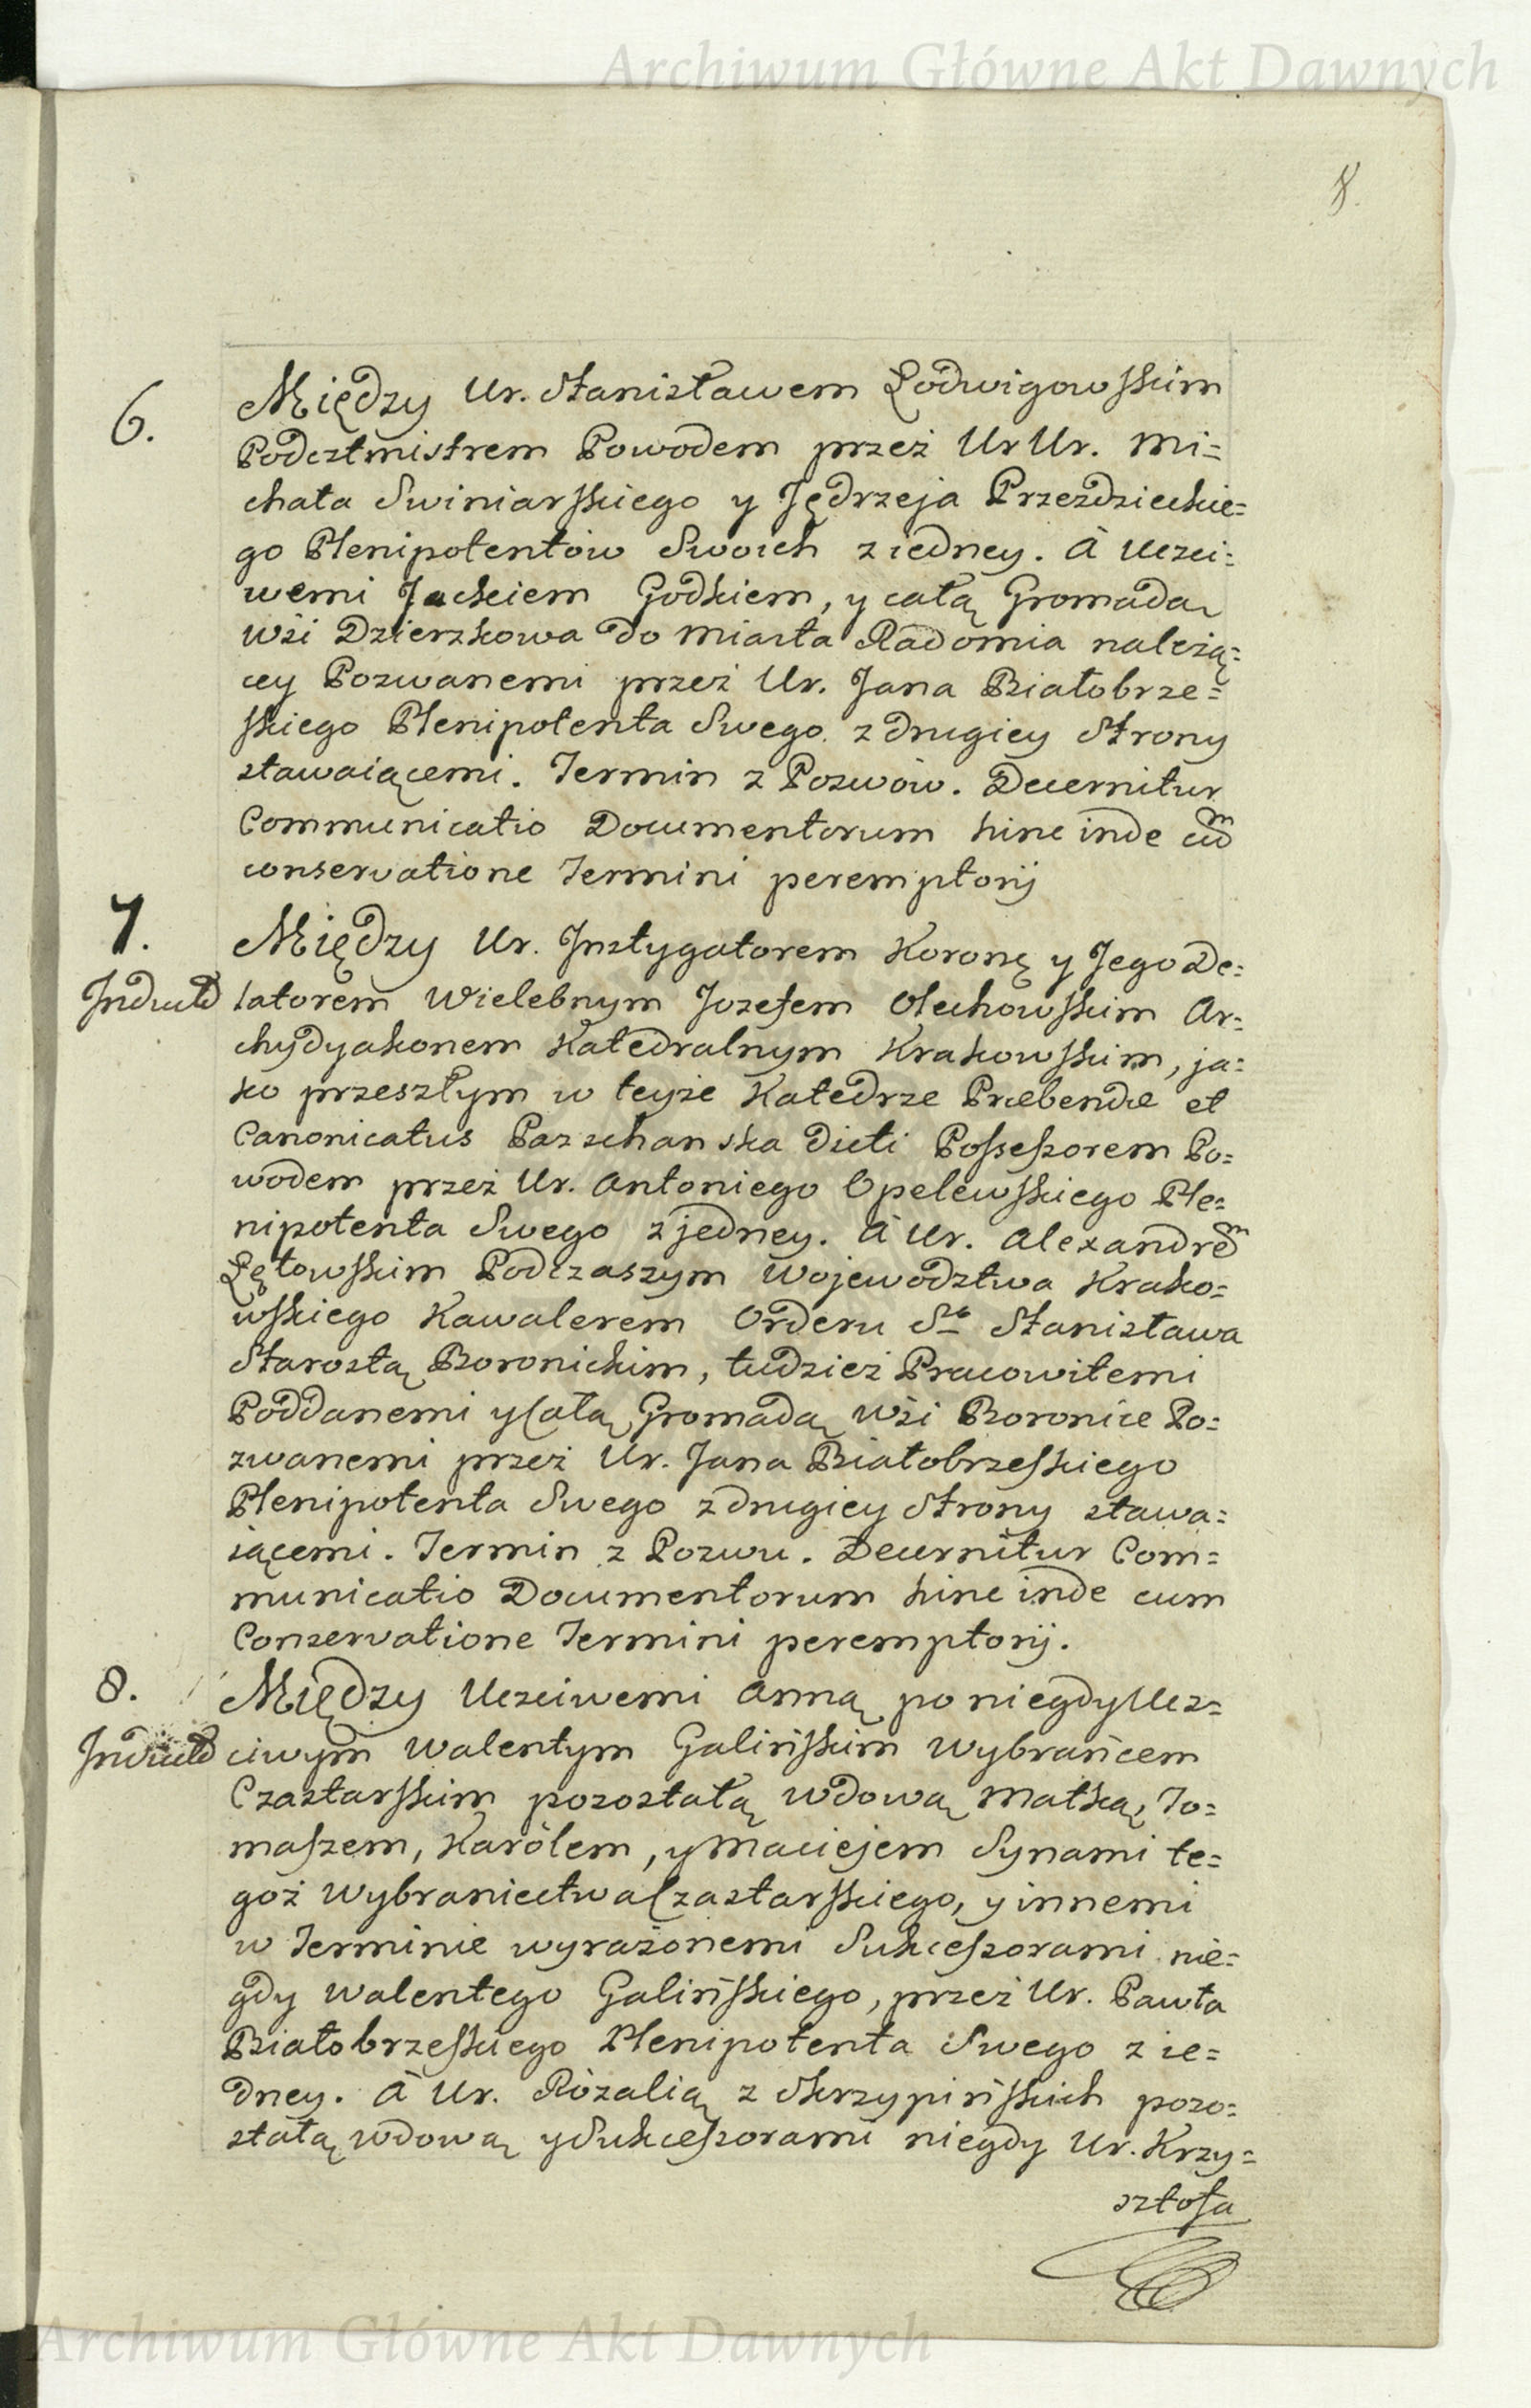 Archiwum Główne Akt Dawnych
8.
6.
Między Ur. Stanisławem Lodwigowskim
Podcztmistrem Powodem przez Ur Ur. Mi=
chała Swiniarskiego y Jędrzeja Przezdzieckie=
go Plenipotentow Swoich z iedney. A Uczci=
wemi Jackiem Godkiem, y całą Gromadą
wsi Dzierzkowa do Miasta Radomia należą=
cey Pozwanemi przez Ur. Jana Białobrze=
skiego Plenipotenta Swego z drugiey Strony
stawaiącemi. Termin z Pozwów. Decernitur
Communicatio Documentorum hinc inde cum
conservatione Termini peremptorij
7.
Między Ur. Instygatorem Korony y Jego De=
Indult
latorem Wielebnym Jozefem Olechowskim Ar=
chydyakonem Katedralnym Krakowskim, ja=
ko przeszłym w teyże Katedrze Præbendæ et
Canonicatus Parzchanska dicti Possessorem Po=
wodem przez Ur. Antoniego Opelewskiego Ple=
nipotenta Swego z jedney. A Ur. Alexandrem
Łętowskim Podczaszym Wojewodztwa Krako=
wskiego Kawalerem Orderu Sgo Stanisława
Starostą Boronickim, tudzież Pracowitemi
Poddanemi y Całą Gromadą wsi Boronice Po=
zwanemi przez Ur. Jana Białobrzeskiego
Plenipotenta Swego z drugiey Strony stawa=
iącemi. Termin z Pozwu. Decernitur Com=
municatio Documentorum hinc inde cum
Conservatione Termini peremptorij.
8.
Między Uczciwemi Anną po niegdy Ucz=
Indult
ciwym Walentym Galińskim Wybrańcem
Czastarskim pozostałą wdową Matką, To=
maszem, Karólem, y Maciejem Synami te=
goż Wybraniectwa Czastarskiego, y innemi
w Terminie wyrażonemi Sukcessorami nie=
gdy Walentego Galińskiego, przez Ur. Pawła
Białobrzeskiego Plenipotenta Swego z ie=
dney. A Ur. Rózalią z Skrzypińskich pozo=
stałą wdową y Sukcessorami niegdy Ur. Krzy=
sztofa
Archiwum Główne Akt Dawnych